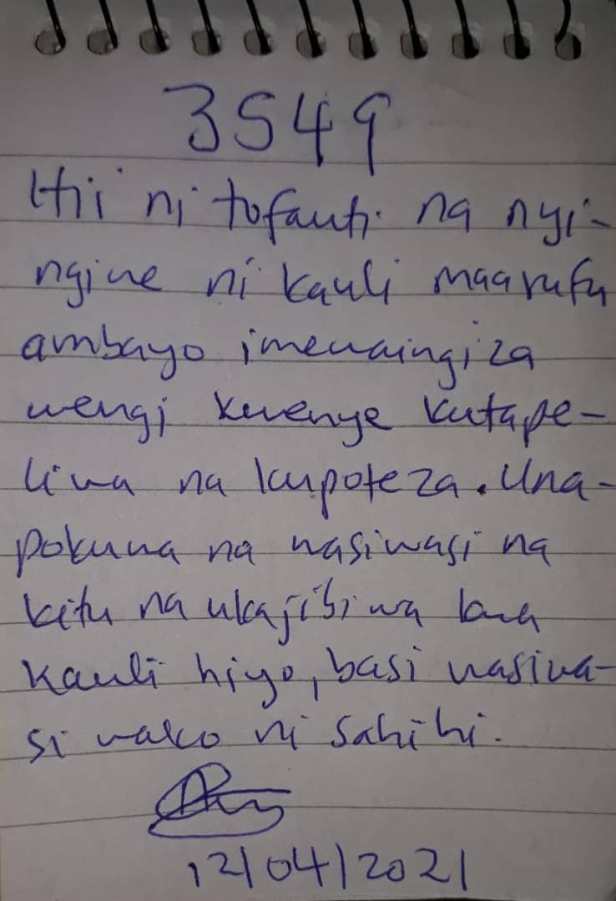 3549
Hii ni tofauti na nyi-
ngine ni kauli maarufu
ambayo imewaingiza
wengi kwenye kutape-
liwa na kupoteza. Una-
pokuwa na wasiwasi na
kitu na ukajibiwa kwa
kauli hiyo, basi wasiwa-
si wako ni sahihi.
12/04/2021